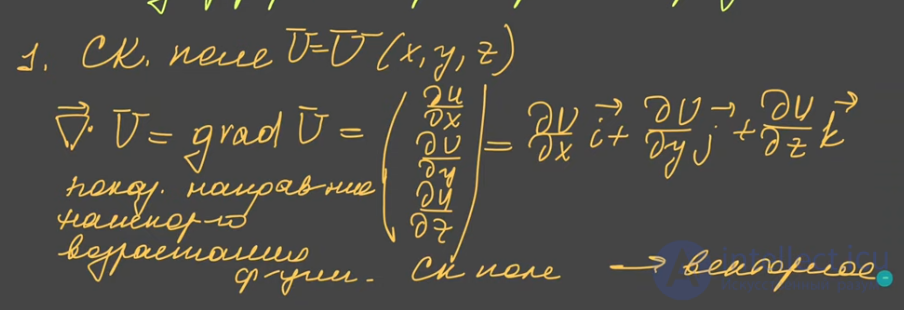 1. Ск. поле U=U(x,y,z)
∇⃗· U = grad U = (∂U/∂x ∂U/∂y ∂U/∂z) = ∂U/∂x i⃗ + ∂U/∂y j⃗ + ∂U/∂z k⃗
показ. направ-ние
наискор-го
возрастания
ф-ции. Ск поле → векторное